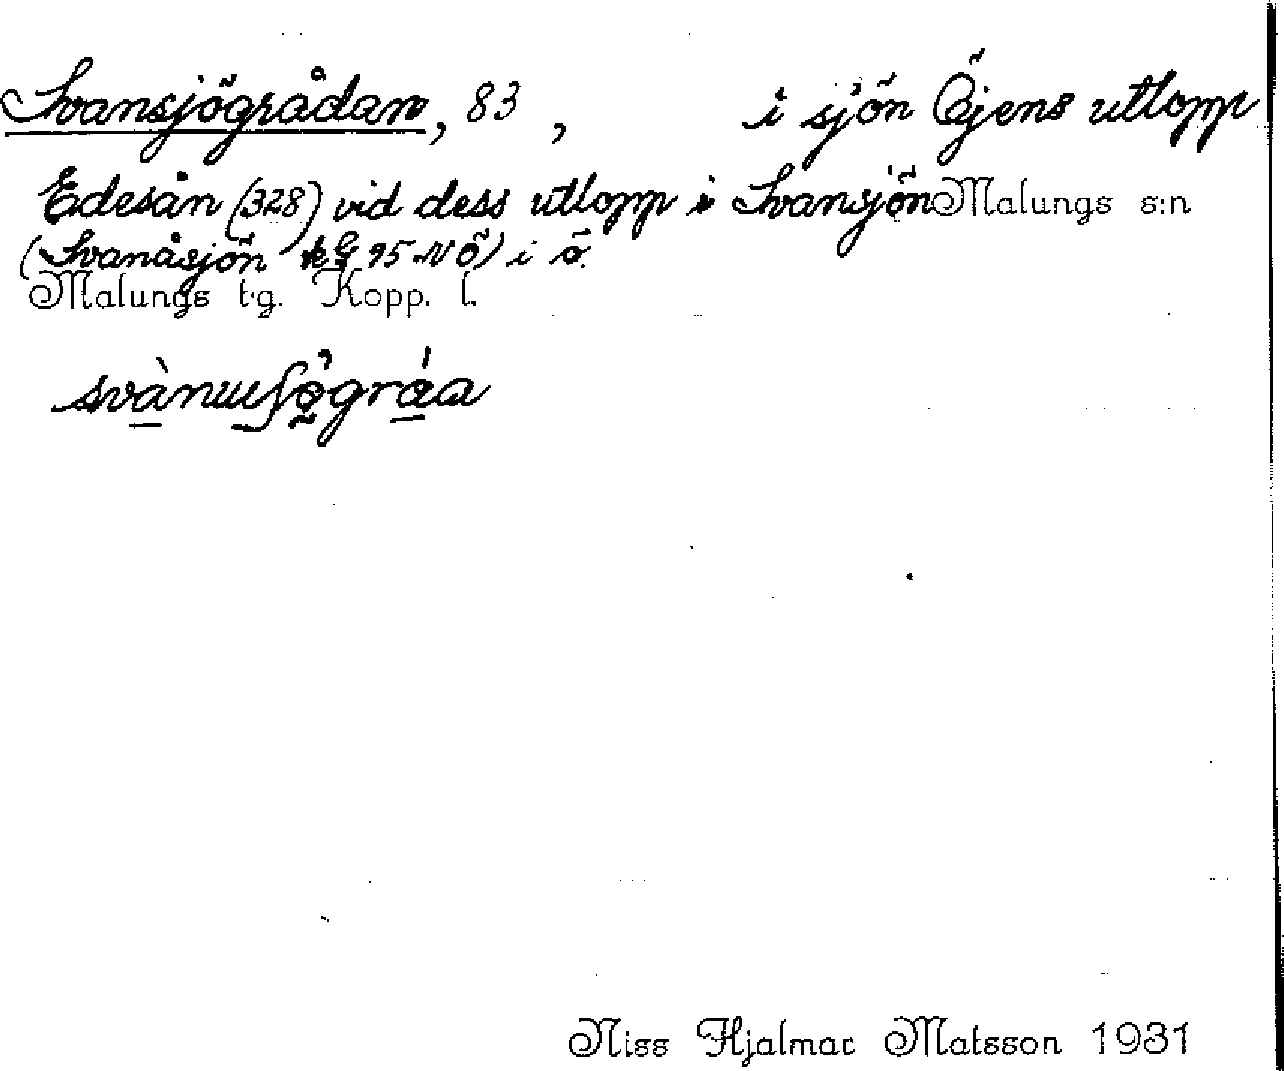 Svansjögrådan, 83, i sjön Öjens utlopp
Edesån (328) vid dess utlopp i Svansjön Malungs s:n
(Svanåsjön kG 95 NÖ) i ö.
Malungs t.g. Kopp. l.
svànɯʃö̀gráa
Niss Hjalmar Matsson 1931